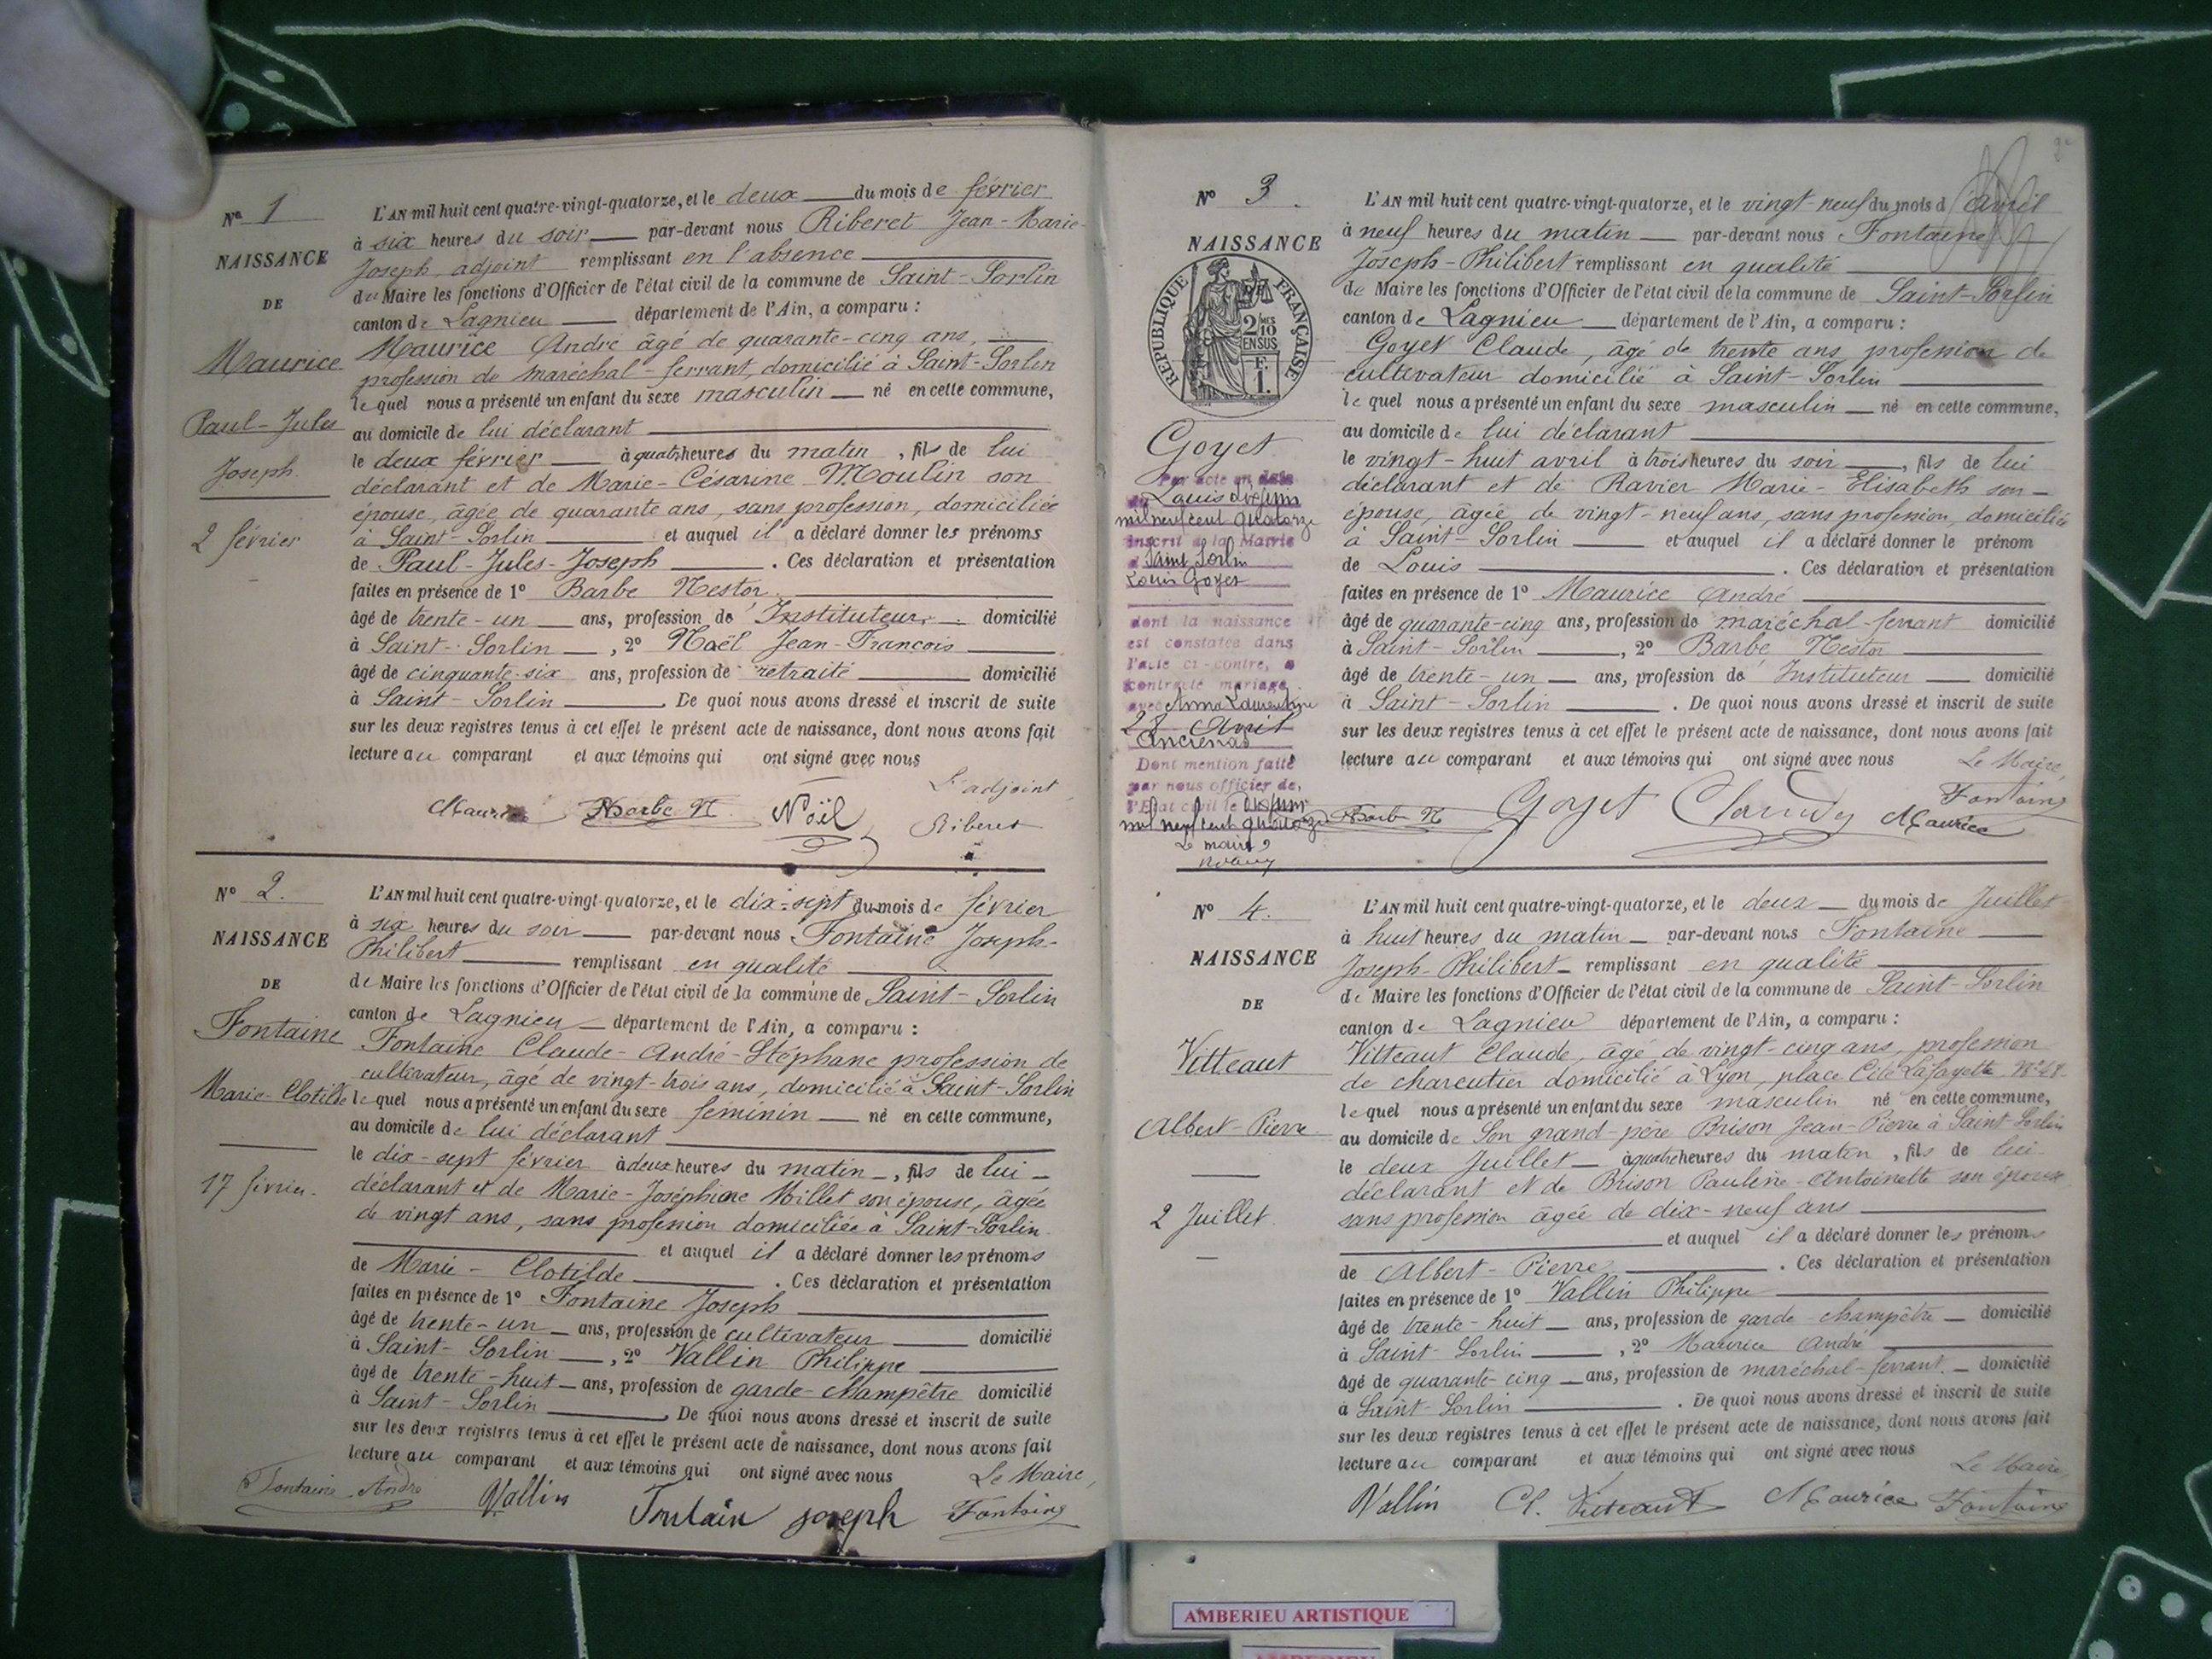 Nº 1
NAISSANCE
DE
Maurice
Paul-Jules
Joseph
2 février
L'AN mil huit cent quatre-vingt-quatorze, et le deux du mois de février
à six heures du soir par-devant nous Riberet Jean-Marie-
Joseph, adjoint remplissant en l'absence
du Maire les fonctions d'Officier de l'état civil de la commune de Saint-Sorlin
canton de Lagnieu département de l'Ain, a comparu :
Maurice André âgé de quarante-cinq ans,
profession de maréchal-ferrant, domicilié à Saint-Sorlin
lequel nous a présenté un enfant du sexe masculin né en cette commune,
au domicile de lui déclarant
le deux février à quatre heures du matin, fils de lui
déclarant et de Marie-Césarine Moulin son
épouse, âgée de quarante ans, sans profession, domiciliée
à Saint-Sorlin et auquel il a déclaré donner les prénoms
de Paul-Jules-Joseph. Ces déclaration et présentation
faites en présence de 1º Barbe Nestor
âgé de trente-un ans, profession de Instituteur, domicilié
à Saint-Sorlin, 2º Noël Jean-François
âgé de cinquante-six ans, profession de retraité domicilié
à Saint-Sorlin. De quoi nous avons dressé et inscrit de suite
sur les deux registres tenus à cet effet le présent acte de naissance, dont nous avons fait
lecture au comparant et aux témoins qui ont signé avec nous
L'adjoint
Maurice Barbe N. Noël Riberet
Nº 2.
NAISSANCE
DE
Fontaine
Marie-Clotilde
17 février.
L'AN mil huit cent quatre-vingt-quatorze, et le dix-sept du mois de février
à six heures du soir par-devant nous Fontaine Joseph-
Philibert remplissant en qualité
de Maire les fonctions d'Officier de l'état civil de la commune de Saint-Sorlin
canton de Lagnieu département de l'Ain, a comparu :
Fontaine Claude-André-Stéphane profession de
cultivateur, âgé de vingt-trois ans, domicilié à Saint-Sorlin
lequel nous a présenté un enfant du sexe féminin né en cette commune,
au domicile de lui déclarant
le dix-sept février à deux heures du matin, fils de lui
déclarant et de Marie-Joséphine Millet son épouse, âgée
de vingt ans, sans profession domiciliée à Saint-Sorlin
et auquel il a déclaré donner les prénoms
de Marie-Clotilde. Ces déclaration et présentation
faites en présence de 1º Fontaine Joseph
âgé de trente-un ans, profession de cultivateur domicilié
à Saint-Sorlin, 2º Vallin Philippe
âgé de trente-huit ans, profession de garde-champêtre domicilié
à Saint-Sorlin. De quoi nous avons dressé et inscrit de suite
sur les deux registres tenus à cet effet le présent acte de naissance, dont nous avons fait
lecture au comparant et aux témoins qui ont signé avec nous
Le Maire,
Fontaine André Vallin Fontain joseph Fontaine
Nº 3.
NAISSANCE
REPUBLIQUE FRANÇAISE
2/10 MES
EN SUS
F.
1.
Goyet
Par acte en date
du
Louis
mil neuf cent quatorze
inscrit à la Mairie
d Saint Sorlin
Louis Goyet
dont la naissance
est constatée dans
l'acte ci-contre, a
contracté mariage
avec Anna Laurentine
28 Avril
Ancrenas
Dont mention faite
par nous officier de
l'Etat civil le
mil neuf cent quatorze
Le maire
L'AN mil huit cent quatre-vingt-quatorze, et le vingt-neuf du mois d'avril
à neuf heures du matin par-devant nous Fontaine
Joseph-Philibert remplissant en qualité
de Maire les fonctions d'Officier de l'état civil de la commune de Saint-Sorlin
canton de Lagnieu département de l'Ain, a comparu :
Goyet Claude, âgé de trente ans, profession de
cultivateur domicilié à Saint-Sorlin
lequel nous a présenté un enfant du sexe masculin né en cette commune,
au domicile de lui déclarant
le vingt-huit avril à trois heures du soir, fils de lui
déclarant et de Ravier Marie-Elisabeth son
épouse, âgée de vingt-neuf ans, sans profession, domiciliée
à Saint-Sorlin et auquel il a déclaré donner le prénom
de Louis. Ces déclaration et présentation
faites en présence de 1º Maurice André
âgé de quarante-cinq ans, profession de maréchal-ferrant domicilié
à Saint-Sorlin, 2º Barbe Nestor
âgé de trente-un ans, profession de Instituteur domicilié
à Saint-Sorlin. De quoi nous avons dressé et inscrit de suite
sur les deux registres tenus à cet effet le présent acte de naissance, dont nous avons fait
lecture au comparant et aux témoins qui ont signé avec nous
Le Maire,
Barbe N Goyet Claudy Maurice Fontaine
Nº 4.
NAISSANCE
DE
Vitteaut
Albert-Pierre
2 Juillet.
L'AN mil huit cent quatre-vingt-quatorze, et le deux du mois de Juillet
à huit heures du matin par-devant nous Fontaine
Joseph-Philibert remplissant en qualité
de Maire les fonctions d'Officier de l'état civil de la commune de Saint-Sorlin
canton de Lagnieu département de l'Ain, a comparu :
Vitteaut Claude, âgé de vingt-cinq ans, profession
de charcutier domicilié à Lyon, place Cité Lafayette
lequel nous a présenté un enfant du sexe masculin né en cette commune,
au domicile de Son grand-père Brison Jean-Pierre à Saint Sorlin
le deux Juillet à quatre heures du matin, fils de lui
déclarant et de Brison Pauline-Antoinette son épouse
sans profession âgée de dix-neuf ans
et auquel il a déclaré donner les prénoms
de Albert-Pierre. Ces déclaration et présentation
faites en présence de 1º Vallin Philippe
âgé de trente-huit ans, profession de garde-champêtre domicilié
à Saint-Sorlin, 2º Maurice André
âgé de quarante-cinq ans, profession de maréchal-ferrant domicilié
à Saint-Sorlin. De quoi nous avons dressé et inscrit de suite
sur les deux registres tenus à cet effet le présent acte de naissance, dont nous avons fait
lecture au comparant et aux témoins qui ont signé avec nous
Le Maire,
Vallin Cl. Vitteaut Maurice Fontaine
AMBERIEU ARTISTIQUE
AMBERIEU